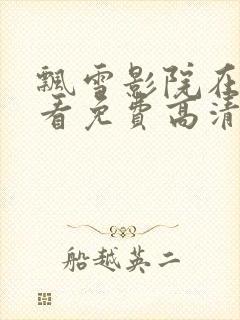 飘雪影院在
看免费高清
船越英二